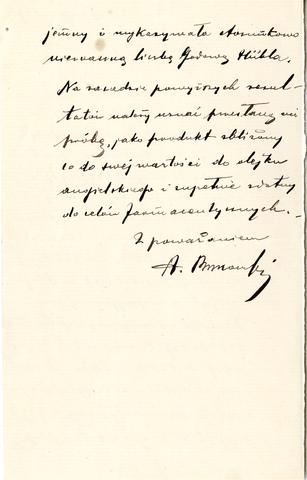 jemny i wykazywała stosunkowo
nieznaczną liczbę Jodową Hübla.
Na zasadzie powyższych rezul-
tatów należy uznać przesłaną mi
próbę, jako produkt zbliżony
co do swej wartości do olejku
angielskiego i zupełnie zdatny
do celów farmaceutycznych.-
Z poważaniem
A.